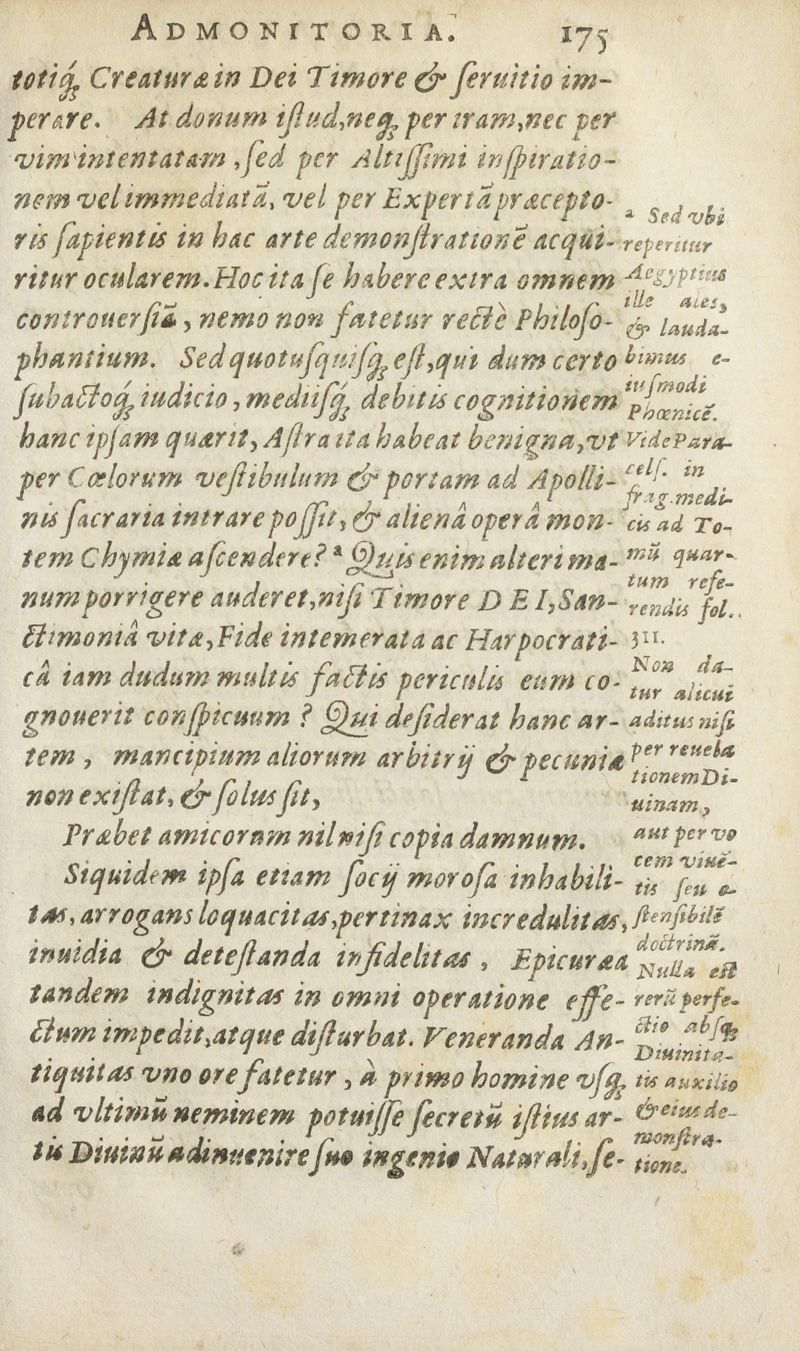 ADMONITORIA. 175
totiq́ꝫ Creaturæ in Dei Timore & ſeruitio im-
perare. At donum iſtud, neqꝫ per iram, nec per
vim intentatam, ſed per Altiſſimi inſpiratio-
nem vel immediatã, vel per Expertã præcepto-
ris ſapientis in hac arte demonſtrationẽ acqui-
ritur ocularem. Hoc ita ſe habere extra omnem
controuerſiã, nemo non fatetur rectè Philoſo-
phantium. Sed quotuſquiſqꝫ eſt, qui dum certo
ſubactoq́ꝫ iudicio, mediiſq́ꝫ debitis cognitionem
hanc ipſam quærit, Aſtra ita habeat benigna, vt
per Cœlorum veſtibulum & portam ad Apolli-
nis ſacraria intrare poſſit, & alienâ operâ mon-
tem Chymiæ aſcendere? ᵃ Quis enim alteri ma-
num porrigere auderet, niſi Timore DEI, San-
ctimoniâ vitæ, Fide intemerata ac Harpocrati-
câ iam dudum multis factis periculis eum co-
gnouerit conſpicuum? Qui deſiderat hanc ar-
tem, mancipium aliorum arbitrij & pecuniæ
non exiſtat, & ſolus ſit,
Præbet amicorum nil niſi copia damnum.
Siquidem ipſa etiam ſocij moroſa inhabili-
tas, arrogans loquacitas, pertinax incredulitas,
inuidia & deteſtanda infidelitas, Epicuræa
tandem indignitas in omni operatione effe-
ctum impedit, atque diſturbat. Veneranda An-
tiquitas vno ore fatetur, à primo homine vſqꝫ
ad vltimũ neminem potuiſſe ſecretũ iſtius ar-
tis Diuinũ adinuenire ſuo ingenio Naturali, ſe-
ᵃ Sed vbi
reperitur
Aegyptius
ille ales,
& lauda-
bimus e-
iuſmodi
Phœnicẽ.
Vide Para-
celſ. in
frag. medi-
cis ad To-
mũ quar-
tum refe-
rendis fol.
311.
Non da-
tur alicui
aditus niſi
per reuela
tionem Di-
uinam,
aut per vo
cem viuẽ-
tis ſeu o-
ſtenſibilẽ
doctrinã.
Nulla eſt
rerũ perfe-
ctio abſqꝫ
Diuinita-
tis auxilio
& eius de-
monſtra-
tione.